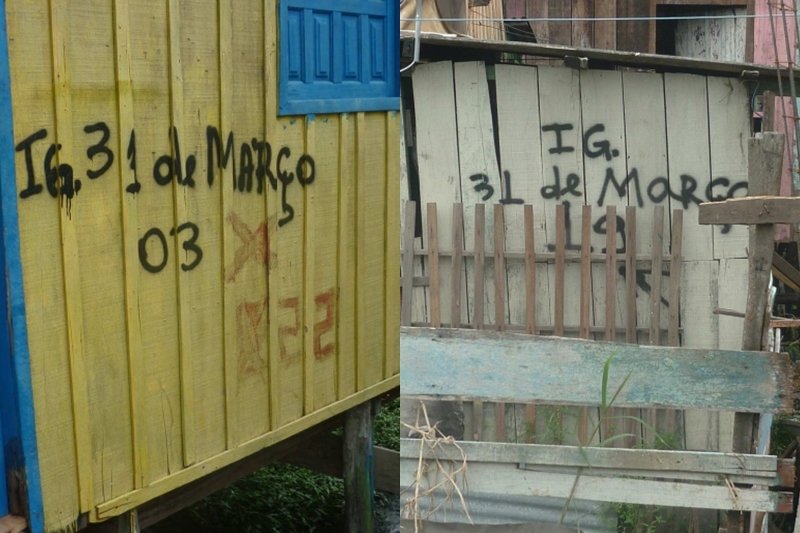 IG. 31 de MARÇO
03
X
IG.
31 de MARÇO
19